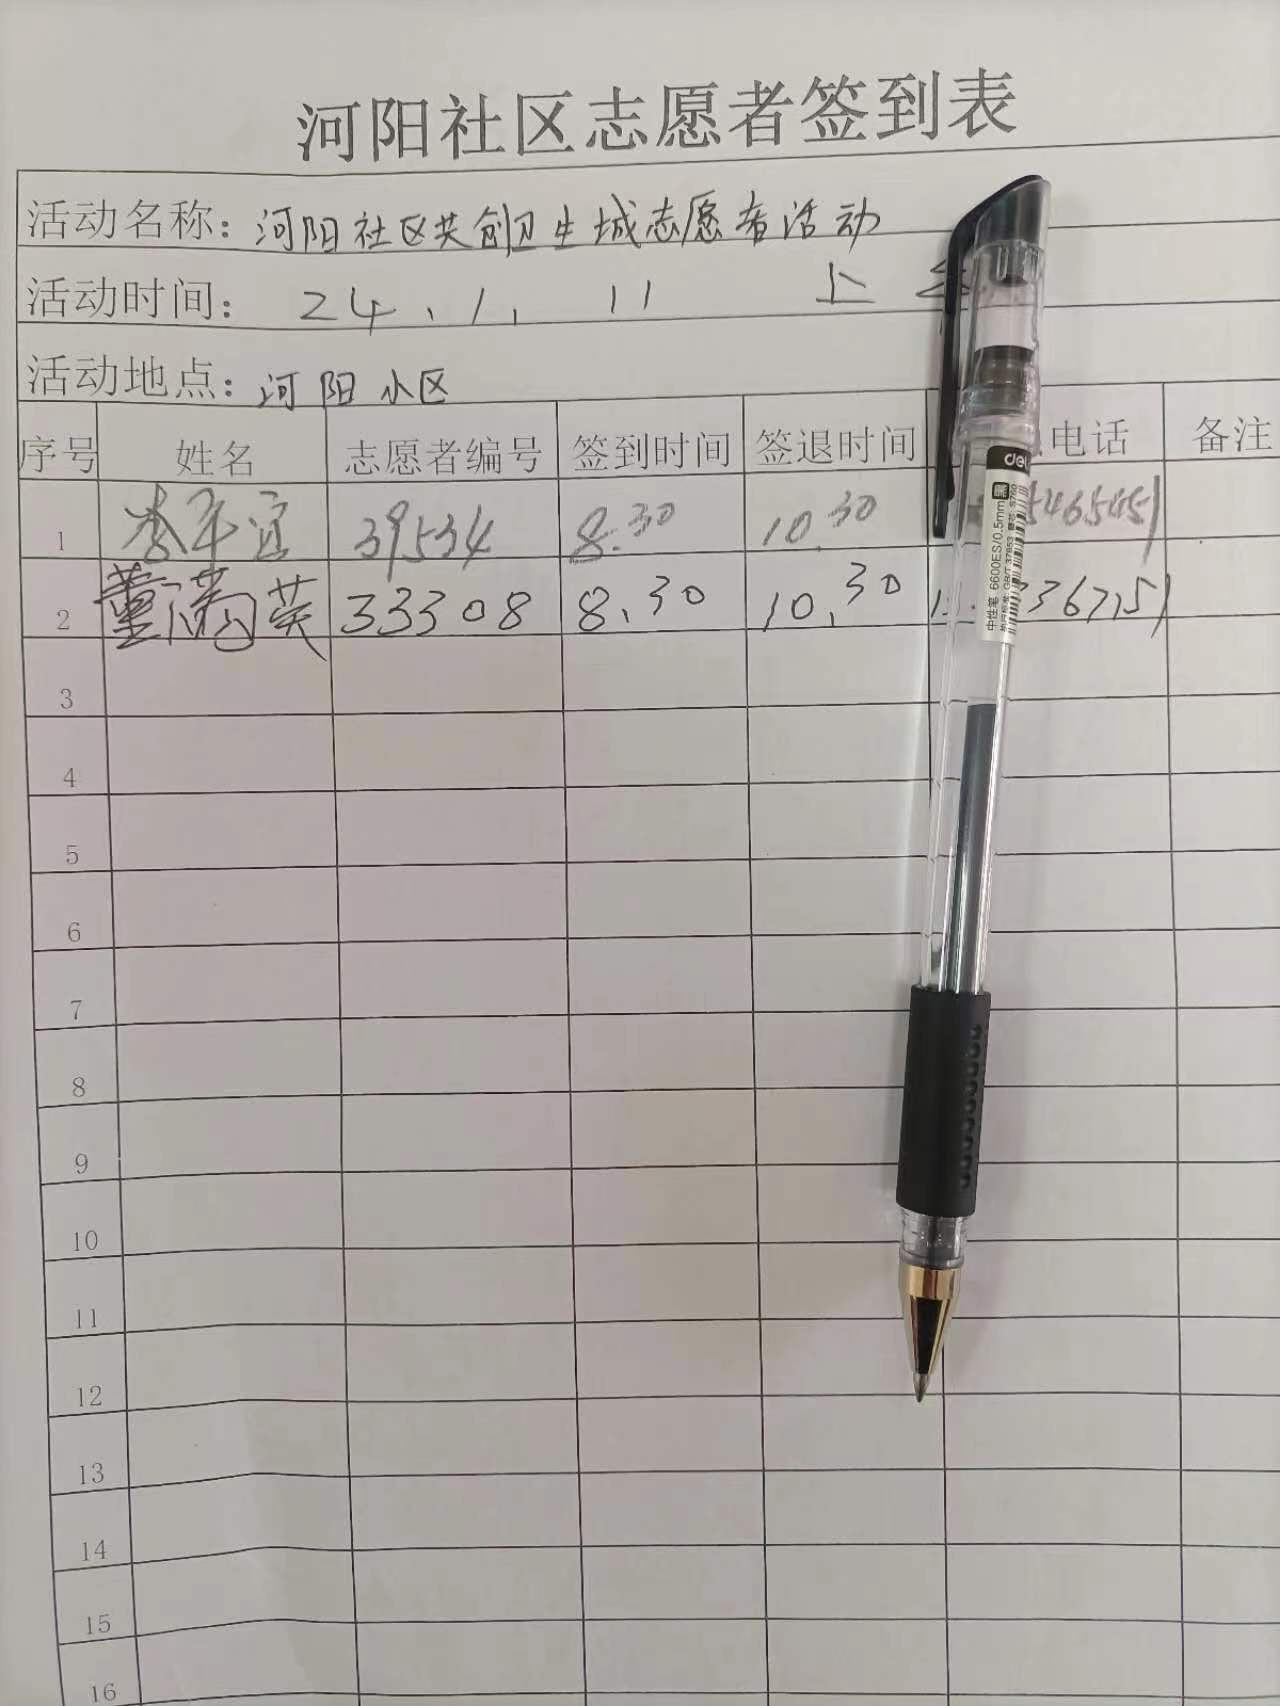 河阳社区志愿者签到表
活动名称：河阳社区共创卫生城志愿者活动
活动时间：24.1.11 上
活动地点：河阳小区
序号 姓名 志愿者编号 签到时间 签退时间 电话 备注
1 李平宜 39534 8.30 10.30
2 董满英 33308 8.30 10.30
3
4
5
6
7
8
9
10
11
12
13
14
15
16
deli
中性笔 6600ES/0.5mm 黑